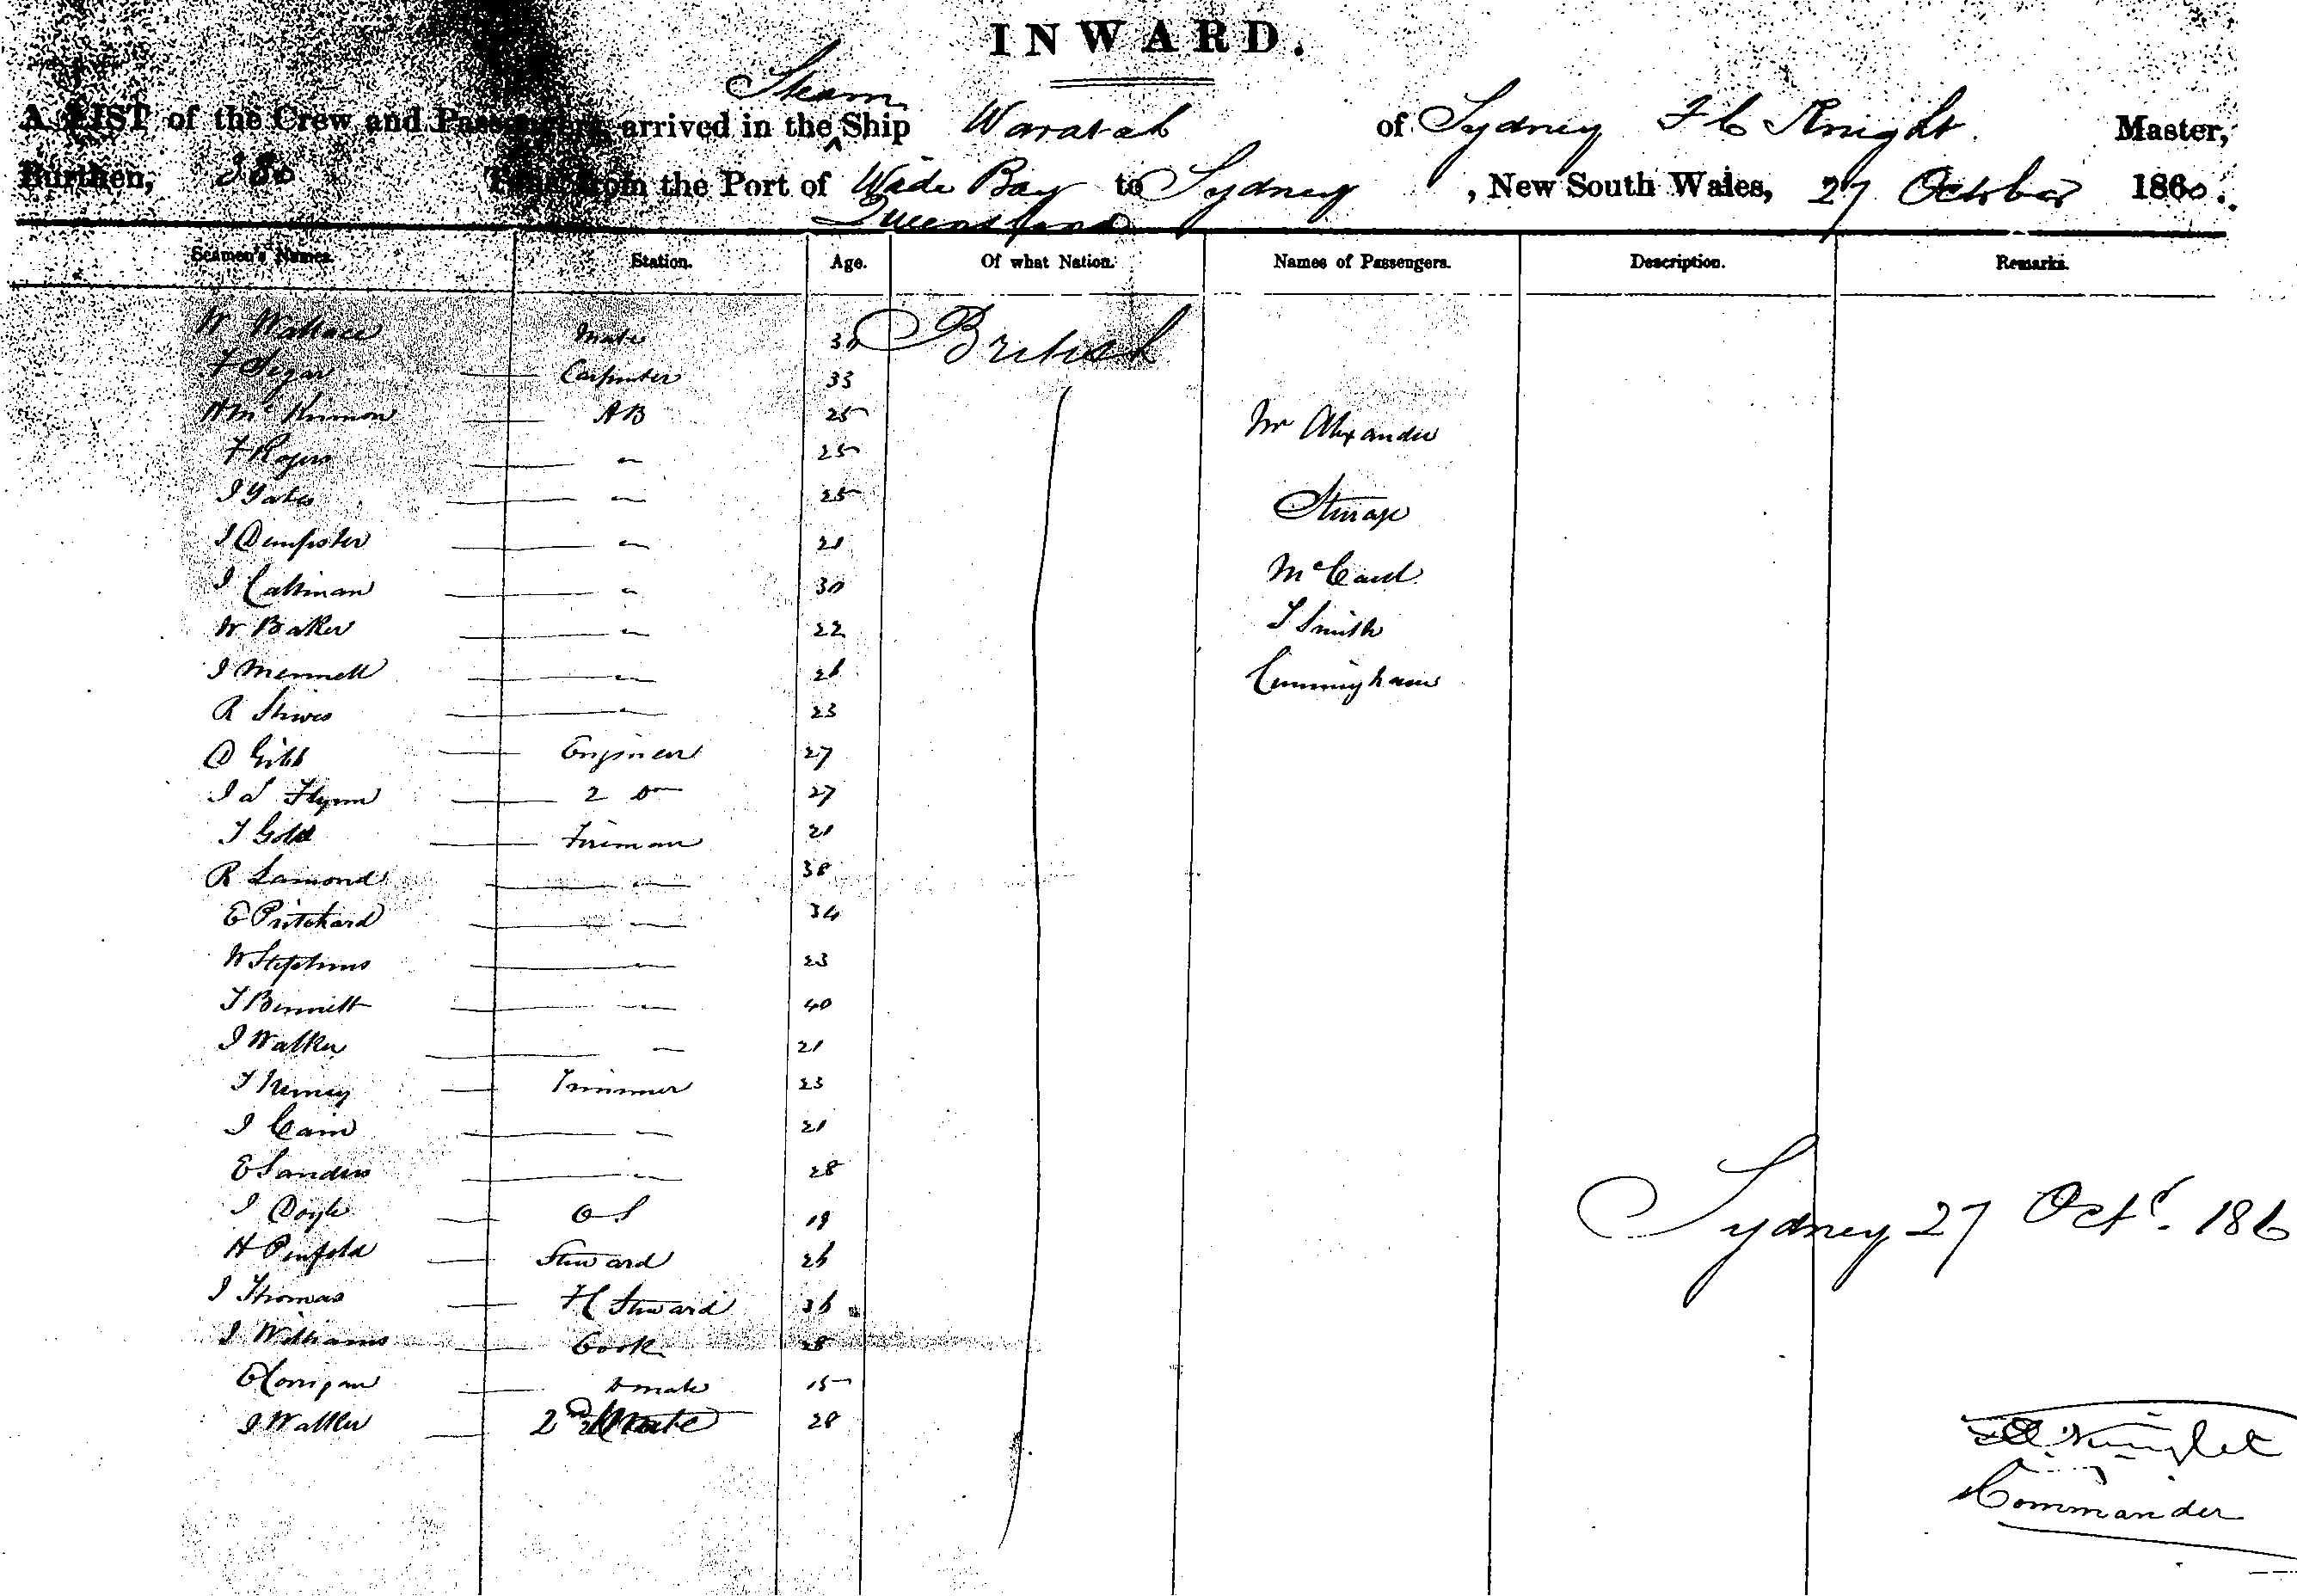 INWARD.
Steam
A LIST of the Crew and Passengers, arrived in the Ship Waratah of Sydney F C Knight Master,
Burthen, Tons from the Port of Wide Bay to Sydney, New South Wales, 27 October 1860.
Queensland
Seamen's Names. Station. Age. Of what Nation. Names of Passengers. Description. Remarks.
W Wallace Mate British
F Segar Carpenter 33
H McKinnon AB 25
Mr Alexander
F Rogers " 25
J Yates " 25
Steerage
J Dempster " 21
J Caltinan " 30
McCaul
W Baker " 22
T Smith
J Mennell " 26
Cunningham
R Shives " 23
D Gibb Engineer 27
J S Flynn 2 Do 27
T Gold Fireman 21
R Lamond " 38
E Pritchard " 34
W Stephens " 23
T Bennett " 40
J Walker " 21
T Kerney Trimmer 23
J Cain " 21
E Sanders " 28
J Doyle O S 19
Sydney 27 Octr. 186
H Penfold Steward 26
J Thomas F C Steward 36
J Williams Cook 28
E Corrigan Do mate 15
J Walker 2nd Mate 28
F C Knight
Commander